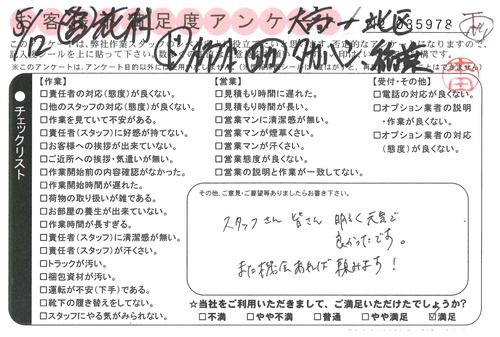 お客様満足度アンケート
№035978
このアンケートは、弊社作業スタッフの
※このアンケートは、アンケート目的以外には
チェックリスト
【作業】
□責任者の対応(態度)が良くない。
□他のスタッフの対応(態度)が良くない。
□作業を見ていて不安がある。
□責任者(スタッフ)に好感が持てない。
□お客様への挨拶が出来ていない。
□ご近所への挨拶・気遣いが無い。
□作業開始前の内容確認がなかった。
□作業開始時間が遅れた。
□荷物の取り扱いが雑である。
□お部屋の養生が出来ていない。
□作業時間が長すぎる。
□責任者(スタッフ)に清潔感が無い。
□責任者(スタッフ)が汗くさい。
□トラックが汚い。
□梱包資材が汚い。
□運転が不安(下手)である。
□靴下の履き替えをしてない。
□スタッフにやる気がみられない。
【営業】
□見積もり時間に遅れた。
□見積もり時間が長い。
□営業マンに清潔感が無い。
□営業マンが煙草くさい。
□営業マンが汗くさい。
□営業態度が良くない。
□営業の説明と作業が一致してない。
【受付・その他】
□電話の対応が良くない。
□オプション業者の説明
・作業が良くない。
□オプション業者の対応
(態度)が良くない。
その他、ご意見・ご要望等ありましたらお書き下さい。
スタッフさん 皆さん 明るく元気で
良かったです。
また機会あれば頼みます!
☆当社をご利用いただきまして、ご満足いただけたでしょうか?
□不満 □やや不満 □普通 □やや満足 ☑満足